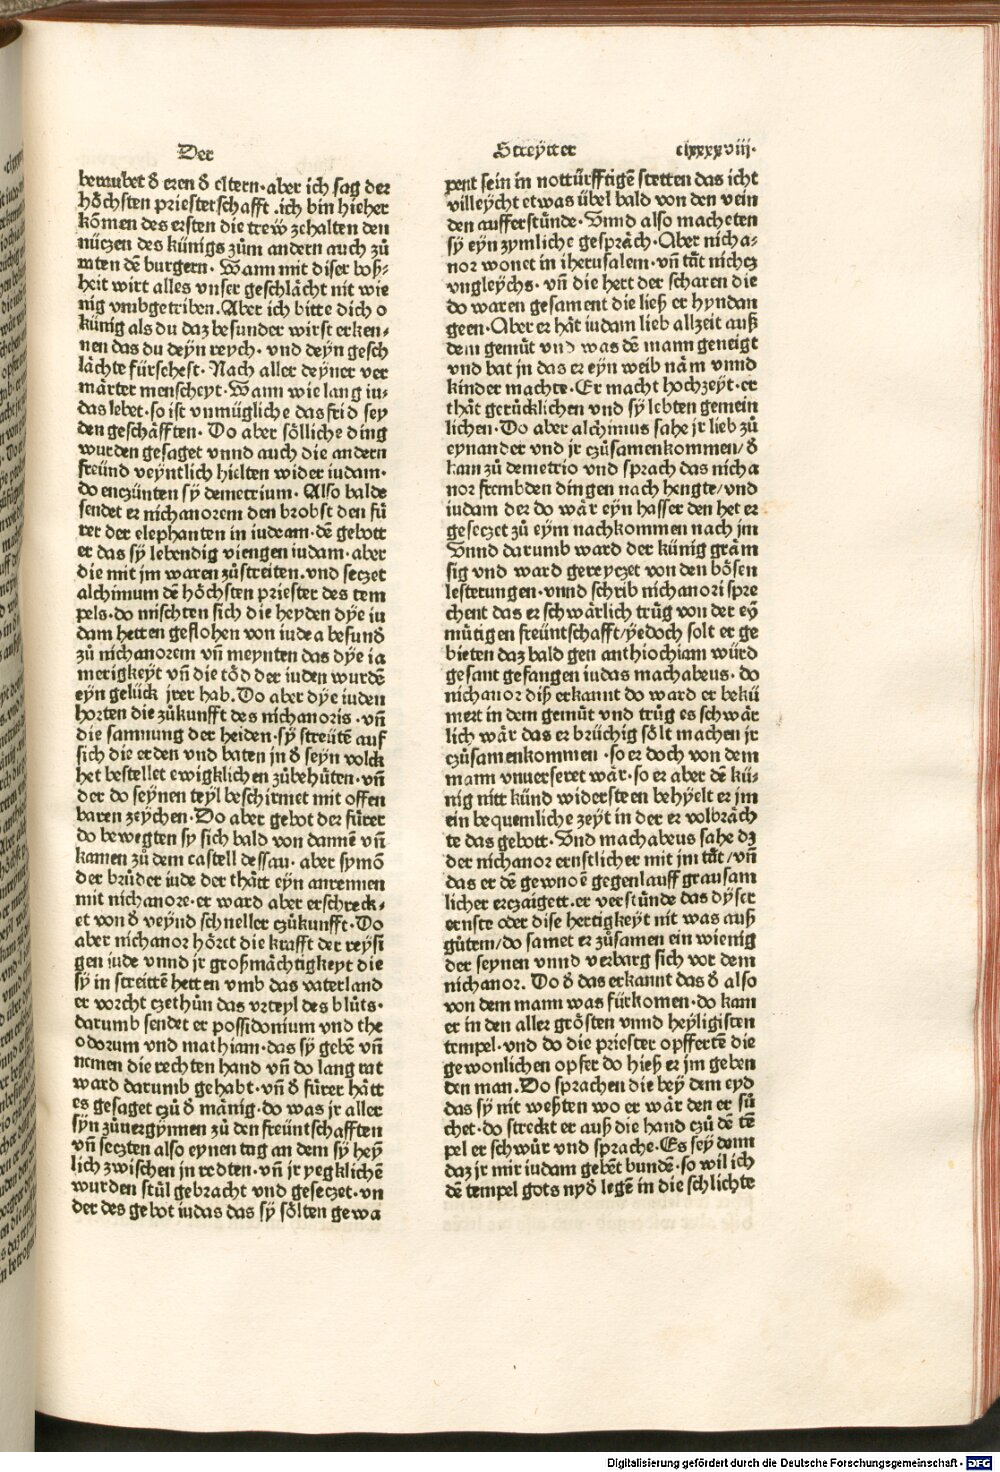 Der
Streÿtter clxxxxviii.
beraubet d̕ eren d̕ eltern·aber ich sag der
höchsten priesterschafft .ich bin hieher
kömen des ersten die trew zehalten den
nüczen des künigs zům andern auch zů
raten dē burgern. Wann mit diser boß⸗
heit wirt alles vnser geschlächt nit wie
nig vmbgetriben. Aber ich bitte dich o
künig als du daz besunder wirst erken⸗
nen das du deÿn reych· vnd deÿn gesch
lächte fürsehest· Nach aller deÿner ver
märter menscheyt·Wann wie lang iu⸗
das lebet·so ist vnmügliche das frid sey
den geschäfften· Do aber sölliche ding
wurden gesaget vnnd auch die andern
freünd veÿntlich hielten wider iudam·
do enczünten sÿ demetrium· Also balde
sendet er nichanorem den brobst den fü
rer der elephanten in iudeam·dē gebott
er das sÿ lebendig viengen iudam·aber
die mit jm waren zůstreiten.vnd seczet
alchimum dē höchsten priester des tem
pels·do mischten sich die heyden dÿe iu
dam hetten geflohen von iudea besund̕
zů nichanorem vn̄ meynten das dÿe ia
merigkeyt vn̄ die töd der iuden wurdē
eÿn gelück jrer hab. Do aber dÿe iuden
horten die zůkunfft des nichanoris ·vn̄
die samnung der heiden·sÿ streütē auf
sich die erden vnd baten in d̕ seÿn volck
het bestellet ewigklichen zůbehüten·vn̄
der do seÿnen teyl beschirmet mit offen
baren zeÿchen·Do aber gebot der fürer
do bewegten sy sich bald von dannē vn̄
kamen zů dem castell dessau· aber symō
der brůder iude der thätt eÿn anrennen
mit nichanore·er ward aber erschreck⸗
et von d̕ veÿnd schneller czůkunfft·Do
aber nichanor höret die krafft der reÿsi
gen iude vnnd jr großmächtigkeyt die
sÿ in streittē hetten vmb das vaterland
er vorcht czethůn das vrteyl des blůts·
darumb sendet er possidonium vnd the
odorum vnd mathiam·das sÿ gebē vn̄
nemen die rechten hand vn̄ do lang rat
ward darumb gehabt·vn̄ d̕ fürer hätt
es gesaget czů d̕ mänig·do was jr aller
sÿn zůuergÿnnen zů den freüntschafften
vn̄ seczten also eynen tag an dem sÿ heÿ
lich zwischen in redten·vn̄ jr yegklichē
wurden stůl gebracht vnd geseczet·vn
der des gebot iudas das sÿ sölten gewa
pent sein in nottürfftigē stetten das icht
villeÿcht etwas übel bald von den vein
den aufferstünde·Vnnd also macheten
sÿ eÿn zymliche gespräch·Aber nicha⸗
nor wonet in iherusalem·vn̄ tůt nichcz
vngleÿchs· vn̄ die hert der scharen die
do waren gesament die ließ er hyndan
geen·Aber er hät iudam lieb allzeit auß
dem gemůt vnd was dē mann geneigt
vnd bat jn das er eÿn weib näm vnnd
kinder machte·Er macht hochzeyt·er
thät gerücklichen vnd sÿ lebten gemein
lichen·Do aber alchimus sahe jr lieb zů
eynander vnd jr czůsamenkommen/d̕
kam zů demetrio vnd sprach das nicha
nor frembden dingen nach hengte/vnd
iudam der do wär eÿn hasser den het er
geseczet zů eÿm nachkommen nach jm
Vnnd darumb ward der künig gräm
sig vnd ward gereyczet von den bösen
lesterungen·vnnd schrib nichanori spre
chent das er schwärlich trůg von der eÿ
mütigen freüntschafft/ÿedoch solt er ge
bieten daz bald gen anthiochiam würd
gesant gefangen iudas machabeus· do
nichanor diß erkannt do ward er bekü
mert in dem gemüt vnd trůg es schwär
lich wär das er brüchig sölt machen jr
czůsamenkommen ·so er doch von dem
mann vnuerseret wär·so er aber dē kü⸗
nig nitt künd widersteen behÿelt er jm
ein bequemliche zeÿt in der er volbräch
te das gebott·Vnd machabeus sahe dz
der nichanor ernstlicher mit jm tůt/vn̄
das er dē gewnoē gegenlauff grausam
licher erczaigett·er verstünde das dÿser
ernste oder dise hertigkeyt nit was auß
gůtem/do samet er zůsamen ein wienig
der seynen vnnd verbarg sich vor dem
nichanor. Do d̕ das erkannt das d̕ also
von dem mann was fürkomen·do kam
er in den aller grösten vnnd heÿligisten
tempel·vnd do die priester opffertē die
gewonlichen opfer do hieß er jm geben
den man. Do sprachen die beÿ dem eyd
das sÿ nit weßten wo er wär den er sů
chet·do streckt er auß die hand czů dē tē
pel er schwůr vnd sprache·Es sey dann
daz jr mir iudam gebēt bundē·so wil ich
dē tempel gots nyd̕ legē in die schlichte
Digitalisierung gefördert durch die Deutsche Forschungsgemeinschaft - DFG